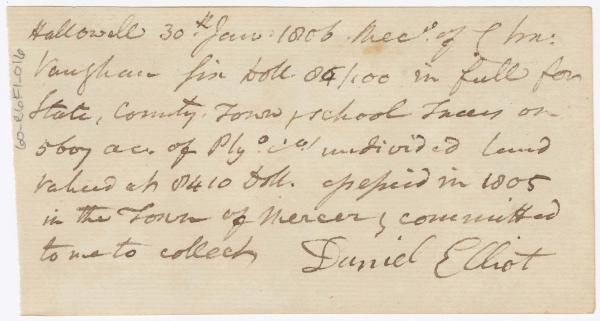 Hallowell 30th Jany 1806 Recd of Chs.
Vaughan Six Doll 84/100 in full for
State, County, Town & school Taxes on
5607 acs. of Plyo. Cos. undivided land
valued at 8410 Doll. assessed in 1805
in the Town of Mercer & committed
to me to collect
Daniel Elliot
60-R6F1-016